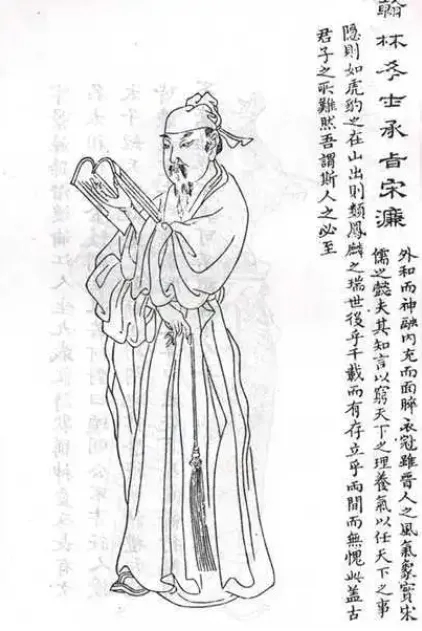 翰林學士承旨宋濂
外和而神融内充而面睟衣冠雖晉人之風氣象實宋
儒之懿夫其知言以窮天下之理養氣以任天下之事
隱則如虎豹之在山出則類鳳麟之瑞世後乎千載而有存立乎兩間而無愧此盖古
君子之所難然吾謂斯人之必至